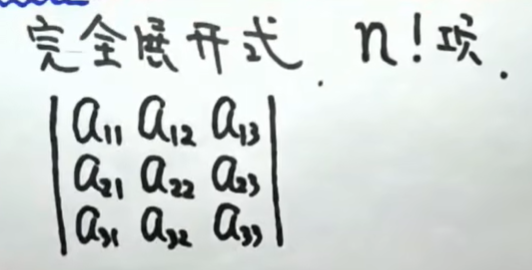 完全展开式. n!项.
a₁₁ a₁₂ a₁₃
a₂₁ a₂₂ a₂₃
a₃₁ a₃₂ a₃₃